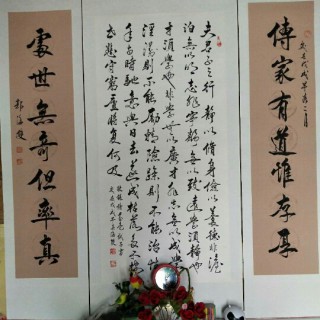 傳家有道惟存厚
歲在戊戌年
夫君子之行靜以修身儉以養德非澹
泊無以明志非寧靜無以致遠夫學須靜也
才須學也非學無以廣才非志無以成學
淫漫則不能勵精險躁則不能治性
年與時馳意與日去遂成枯落多不接
世悲守窮廬將復何及
諸葛亮誡子書
歲在戊戌年
處世無奇但率真